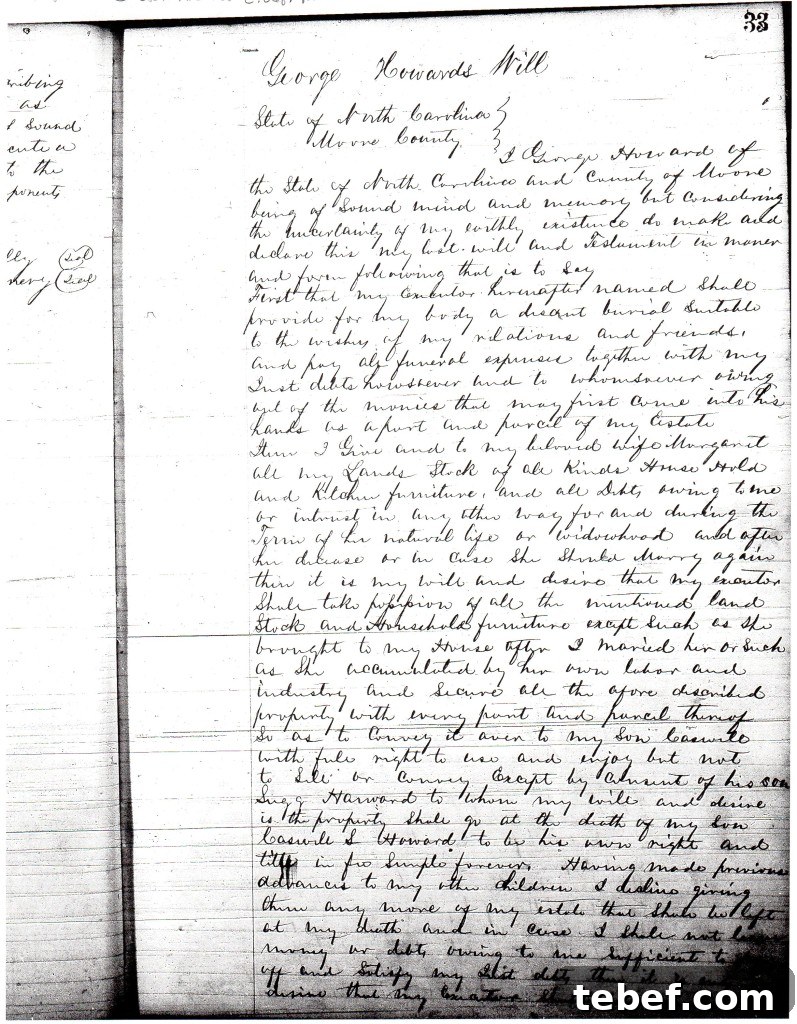 33
George Howards Will
State of North Carolina
Moore County
I George Howard of
the State of North Carolina and County of Moore
being of Sound mind and memory but considering
the uncertainty of my earthly existence do make and
declare this my last will and Testament in maner
and form following that is to Say
First that my Executor hereinafter named Shall
provide for my body a discent burial Suitable
to the wishes of my relations and friends,
and pay all funeral expenses together with my
Just debts howsoever and to whomsoever owing
out of the monies that may first come into his
hands as a part and parcel of my Estate
Item I Give and to my beloved wife Margaret
all my Lands Stock of all Kinds House Hold
and Kitchen furniture, and all Debts owing to me
or intrust in any other way for and during the
Term of her natural life or widowhood and after
her disease or in case She Should Marry again
then it is my will and desire that my executor
Shall take possession of all the mentioned land
Stock and Household furniture except Such as She
brought to my House after I maried her or Such
as She accumulated by her own labor and
industry and Secure all the afore discribed
property with every part and parcel thereof
So as to Convey it over to my Son Caswell
with full right to use and enjoy but not
to Sell or Convey Except by Consent of his son
Sugg Harward to whom my will and desire
is the property Shall go at the death of my Son
Caswell S Howard to be his own right and
title in fee Simple forever. Having made previous
advances to my other children I decline giving
them any more of my estate that Shall be left
at my death and in case I Shall not
money or debts owing to me Sufficient to
off and Satisfy my Just debts
desire that my Executor
ribing
as
Sound
cute a
to the
ponents
lly Seal
nery Seal
tebef.com